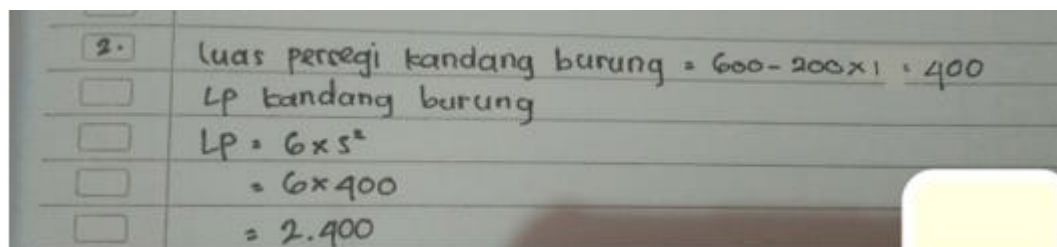 2. luas persegi kandang burung = 600 - 200 x 1 = 400
LP kandang burung
LP = 6 x s²
= 6 x 400
= 2.400